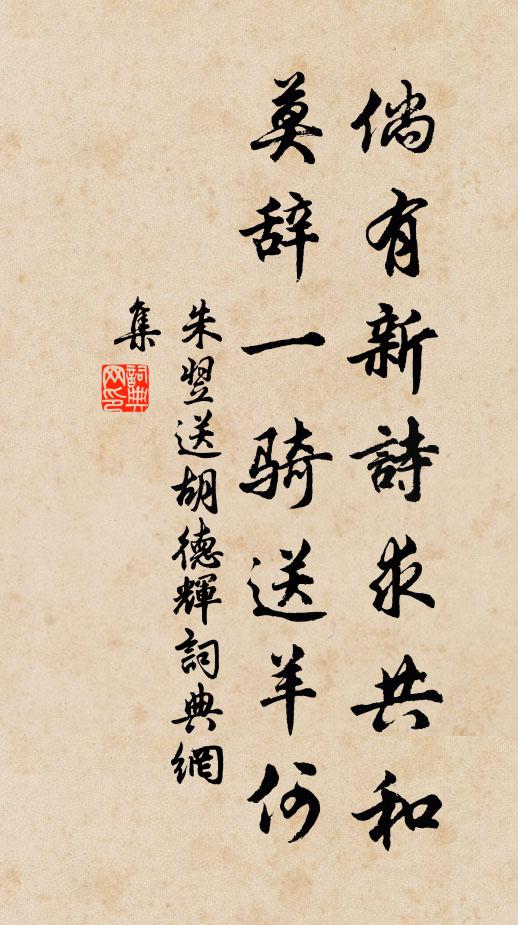 倘有新詩求共和
莫辞一骑送羊何
朱翌送胡德輝詞典網
集
詞典网印